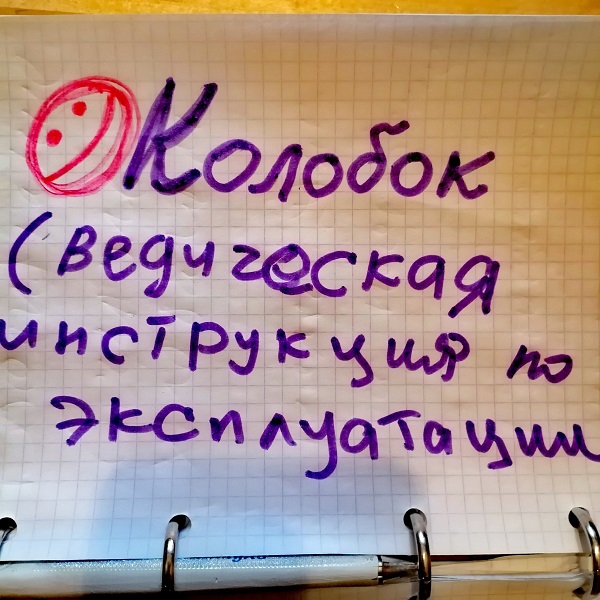 Колобок
(ведическая
инструкция по
эксплуатации